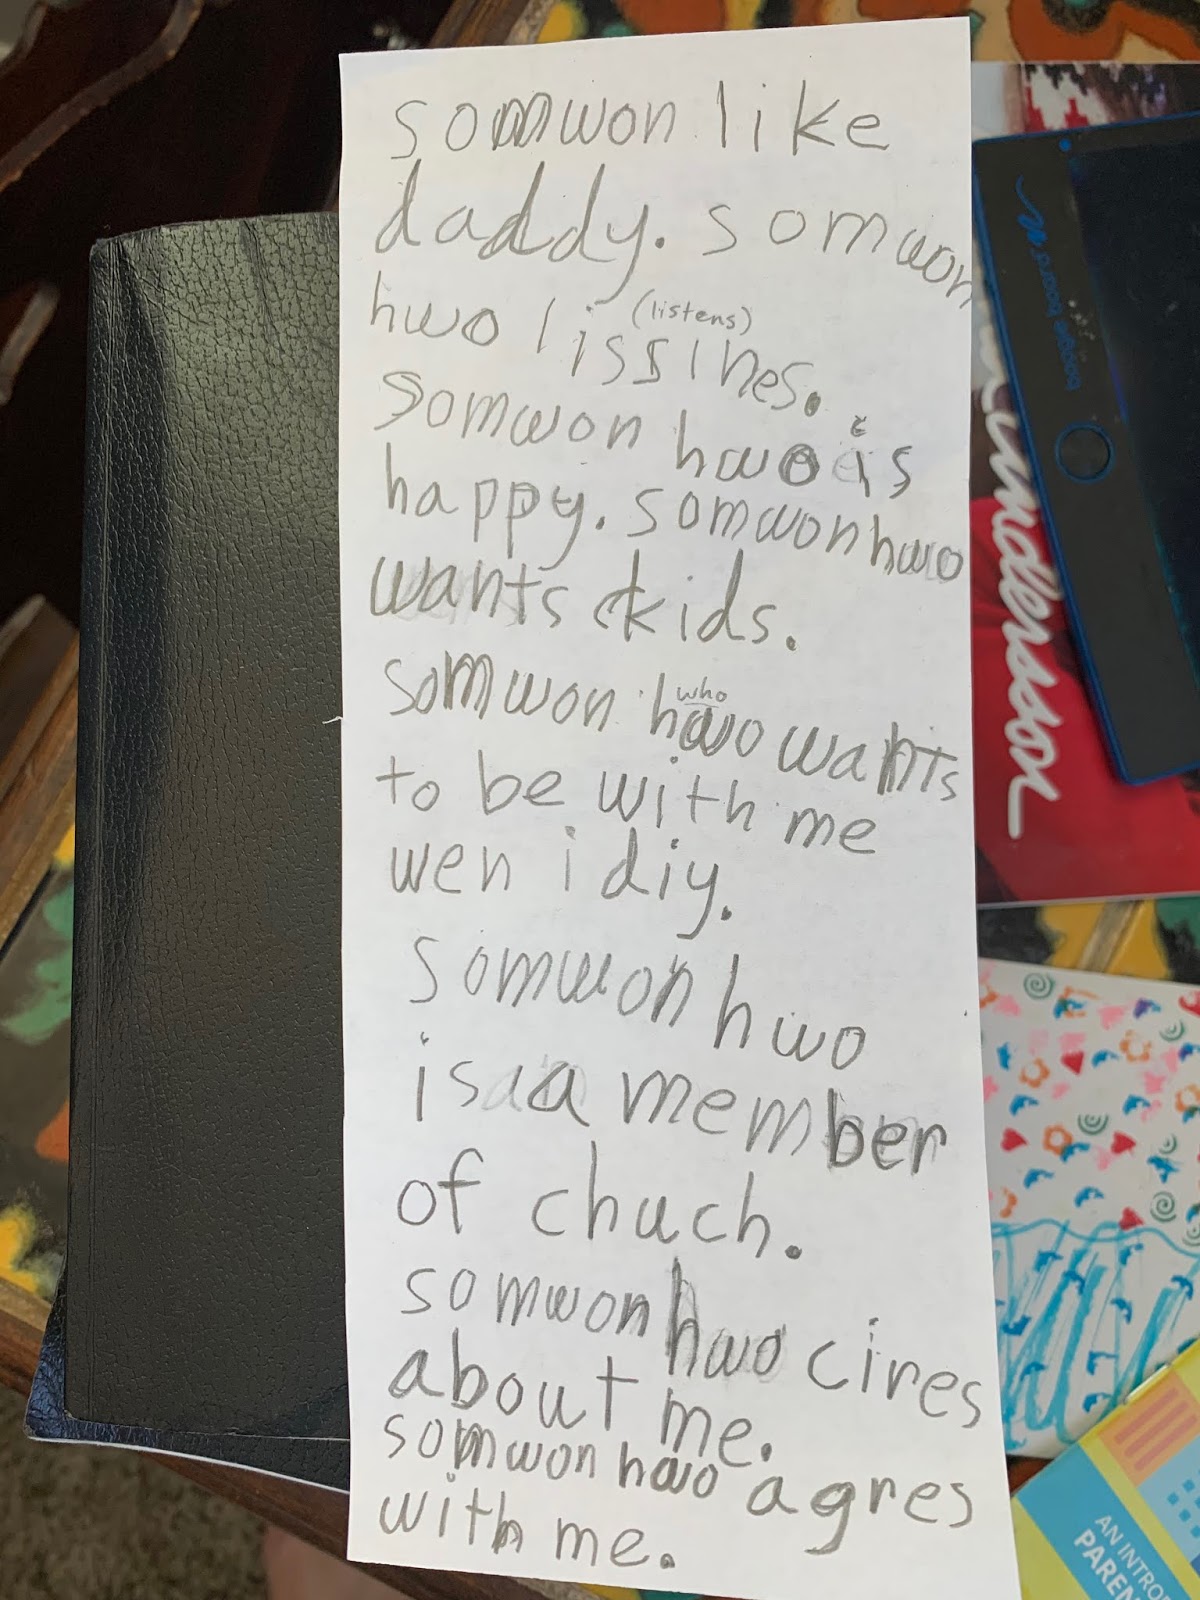 somwon like
daddy. somwon
hwo lissines.
(listens)
somwon hwo is
happy. somwon hwo
wants kids.
somwon hwo wants
who
to be with me
wen i diy.
somwon hwo
is a member
of chuch.
somwon hwo cires
about me.
somwon hwo agres
with me.
boogie board
AN INTRO
PAREN